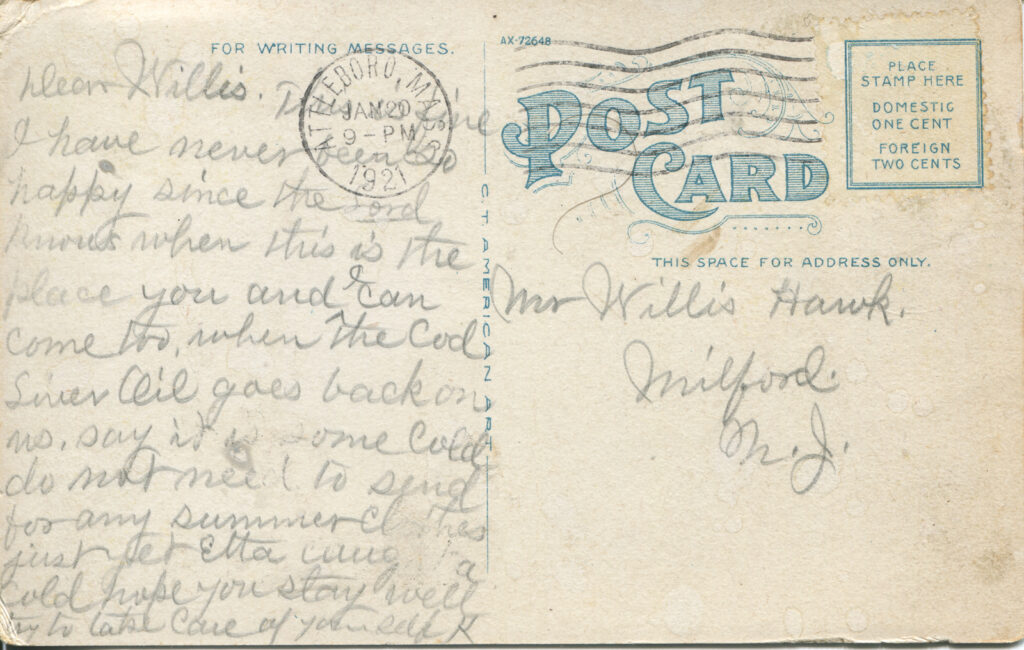 FOR WRITING MESSAGES.
Dear Willis.
I have never been so
happy since the Lord
knows when this is the
place you and I can
come too, when the Cod
Liver Oil goes back on
us. say it is some Cold
do not need to send
for any summer Clothes
just yet Etta a
cold hope you stay well
try to take Care of yourself
ATTLEBORO, MASS.
JAN 20
9-PM
1921
C.T. AMERICAN ART
AX-72648
POST
CARD
PLACE
STAMP HERE
DOMESTIC
ONE CENT
FOREIGN
TWO CENTS
THIS SPACE FOR ADDRESS ONLY.
Mr Willis Hawk.
Milford.
N.J.